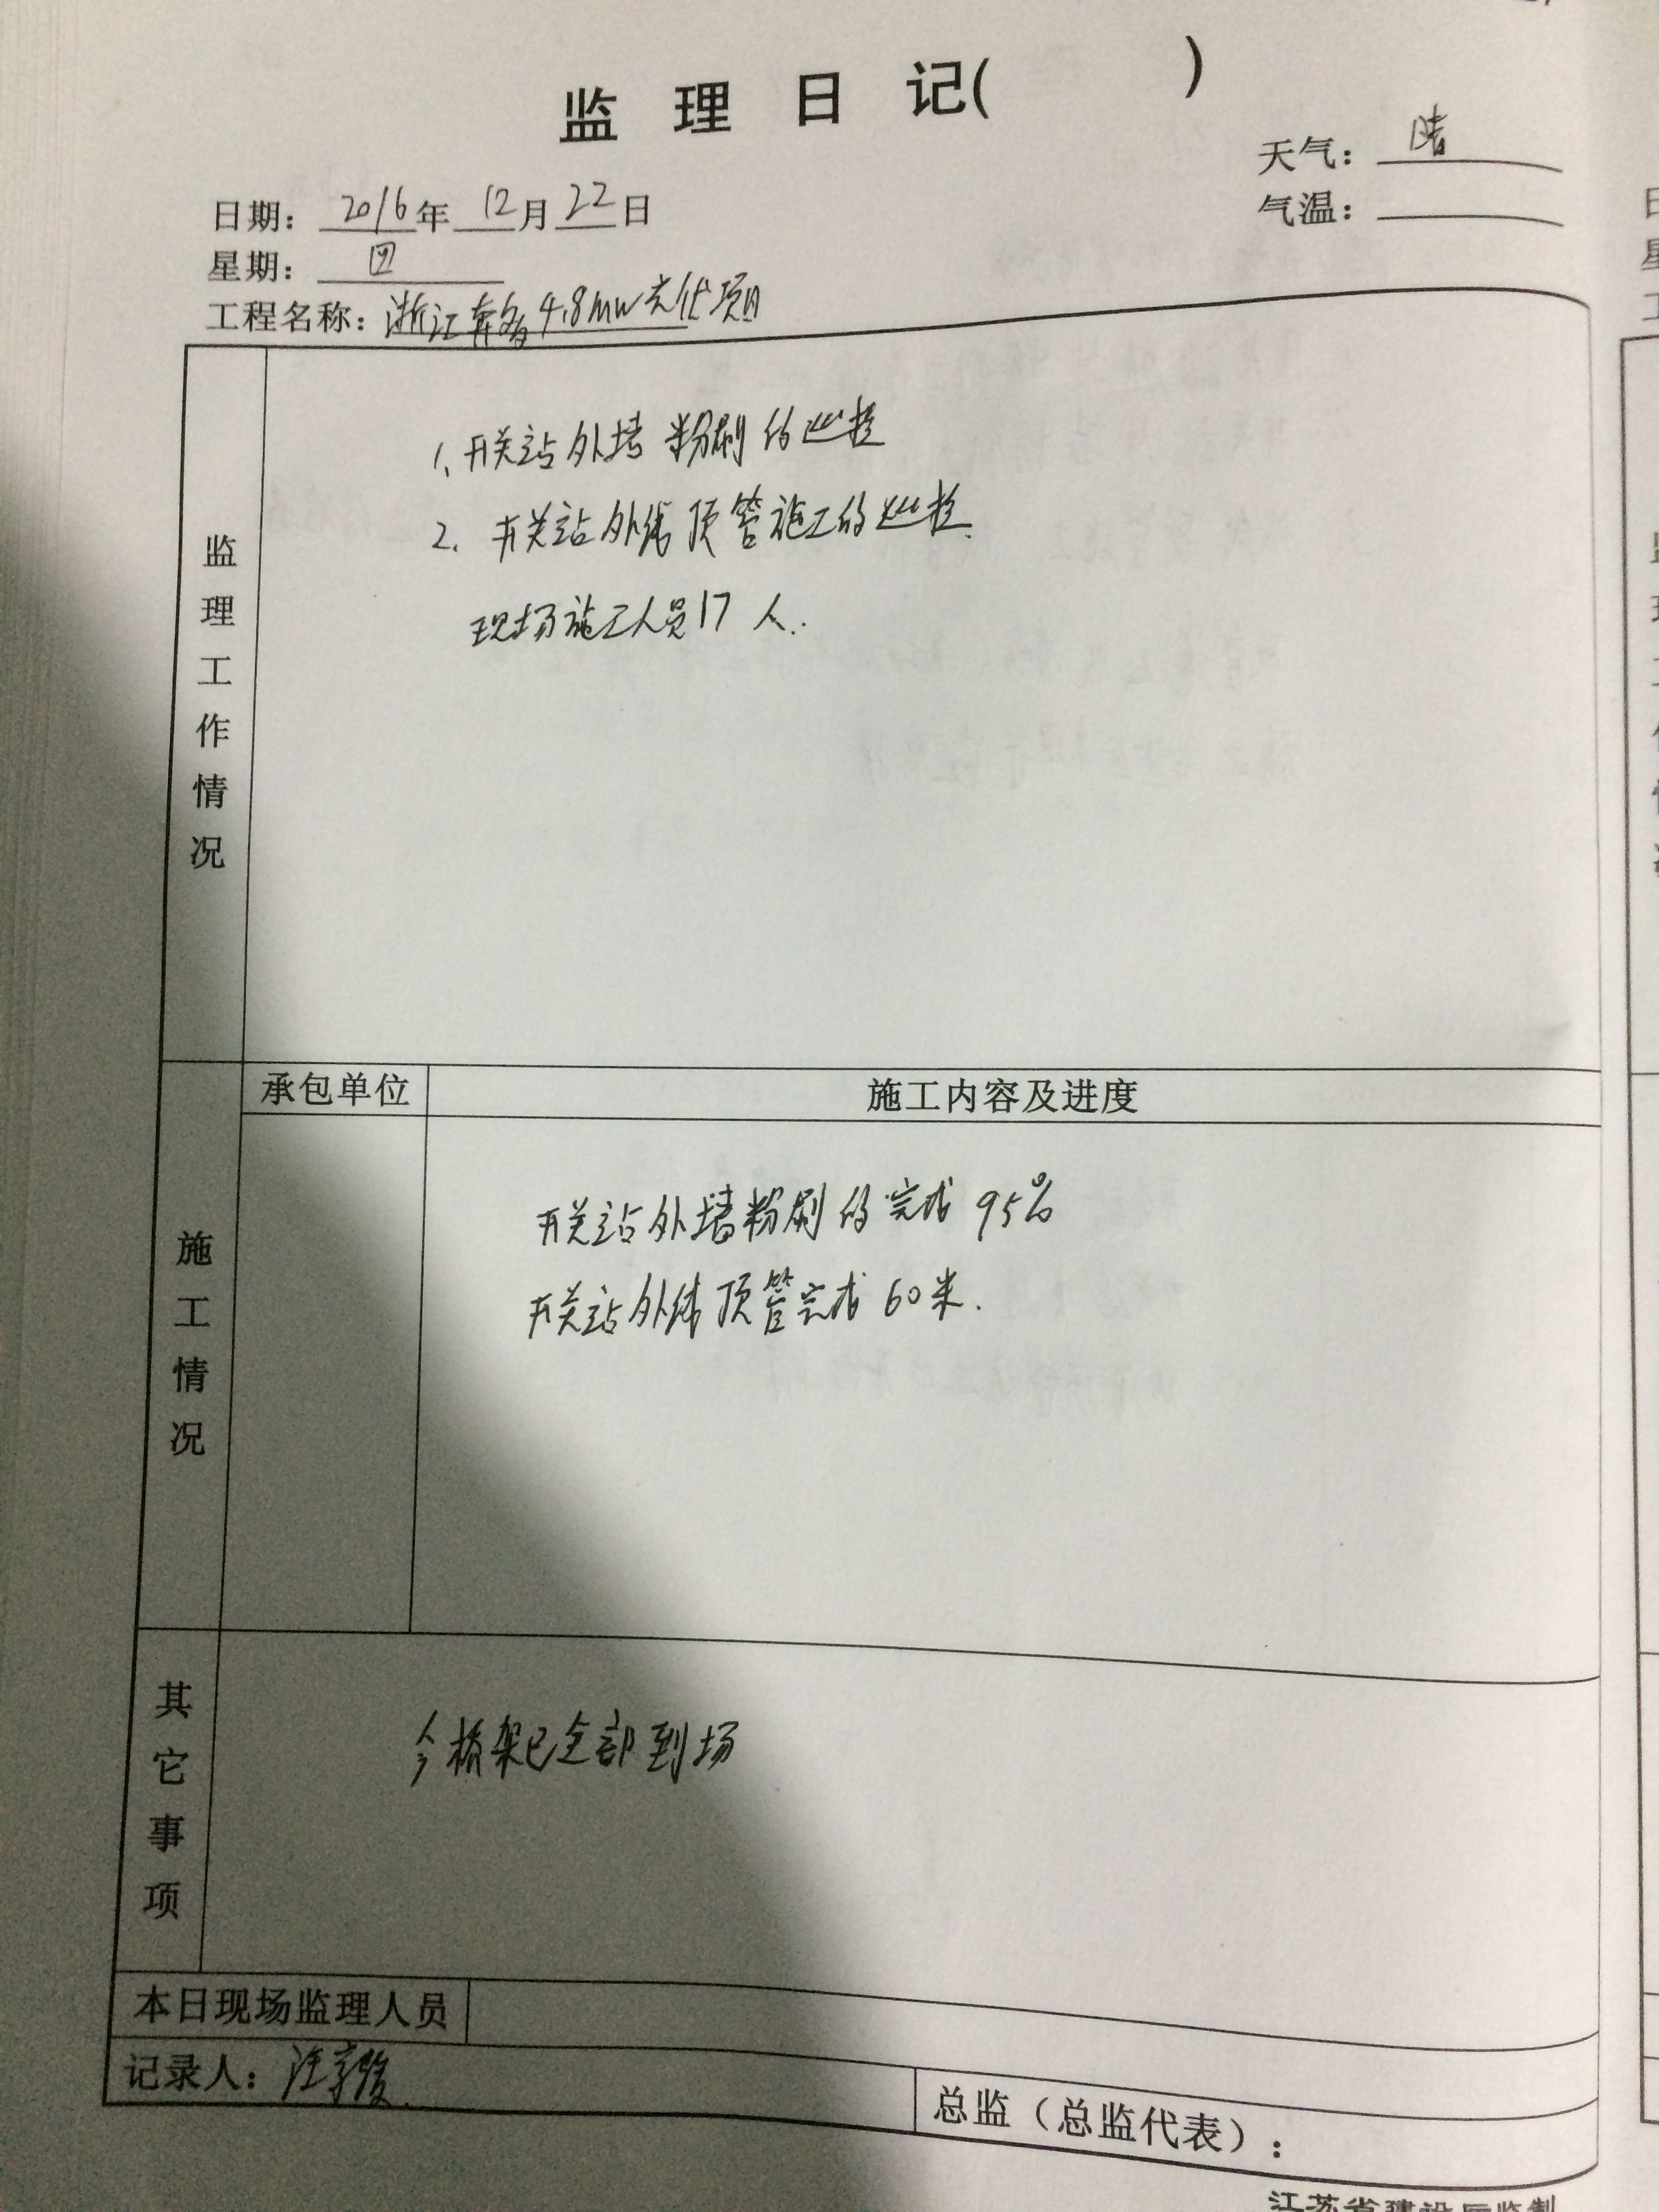 监 理 日 记( )
天气： 晴
日期： 2016年 12月22日
气温：
星期： 四
工程名称：浙江奔多4.8mw光伏项目
监理工作情况
1、开关站外墙粉刷的巡检
2. 开关站外线顶管施工的巡检.
现场施工人员17人.
承包单位
施工内容及进度
施工情况
开关站外墙粉刷的完成95%
开关站外线顶管完成60米.
其它事项
今桥架已全部到场
本日现场监理人员
记录人：汪
总监（总监代表）：
江苏省建设厅监制